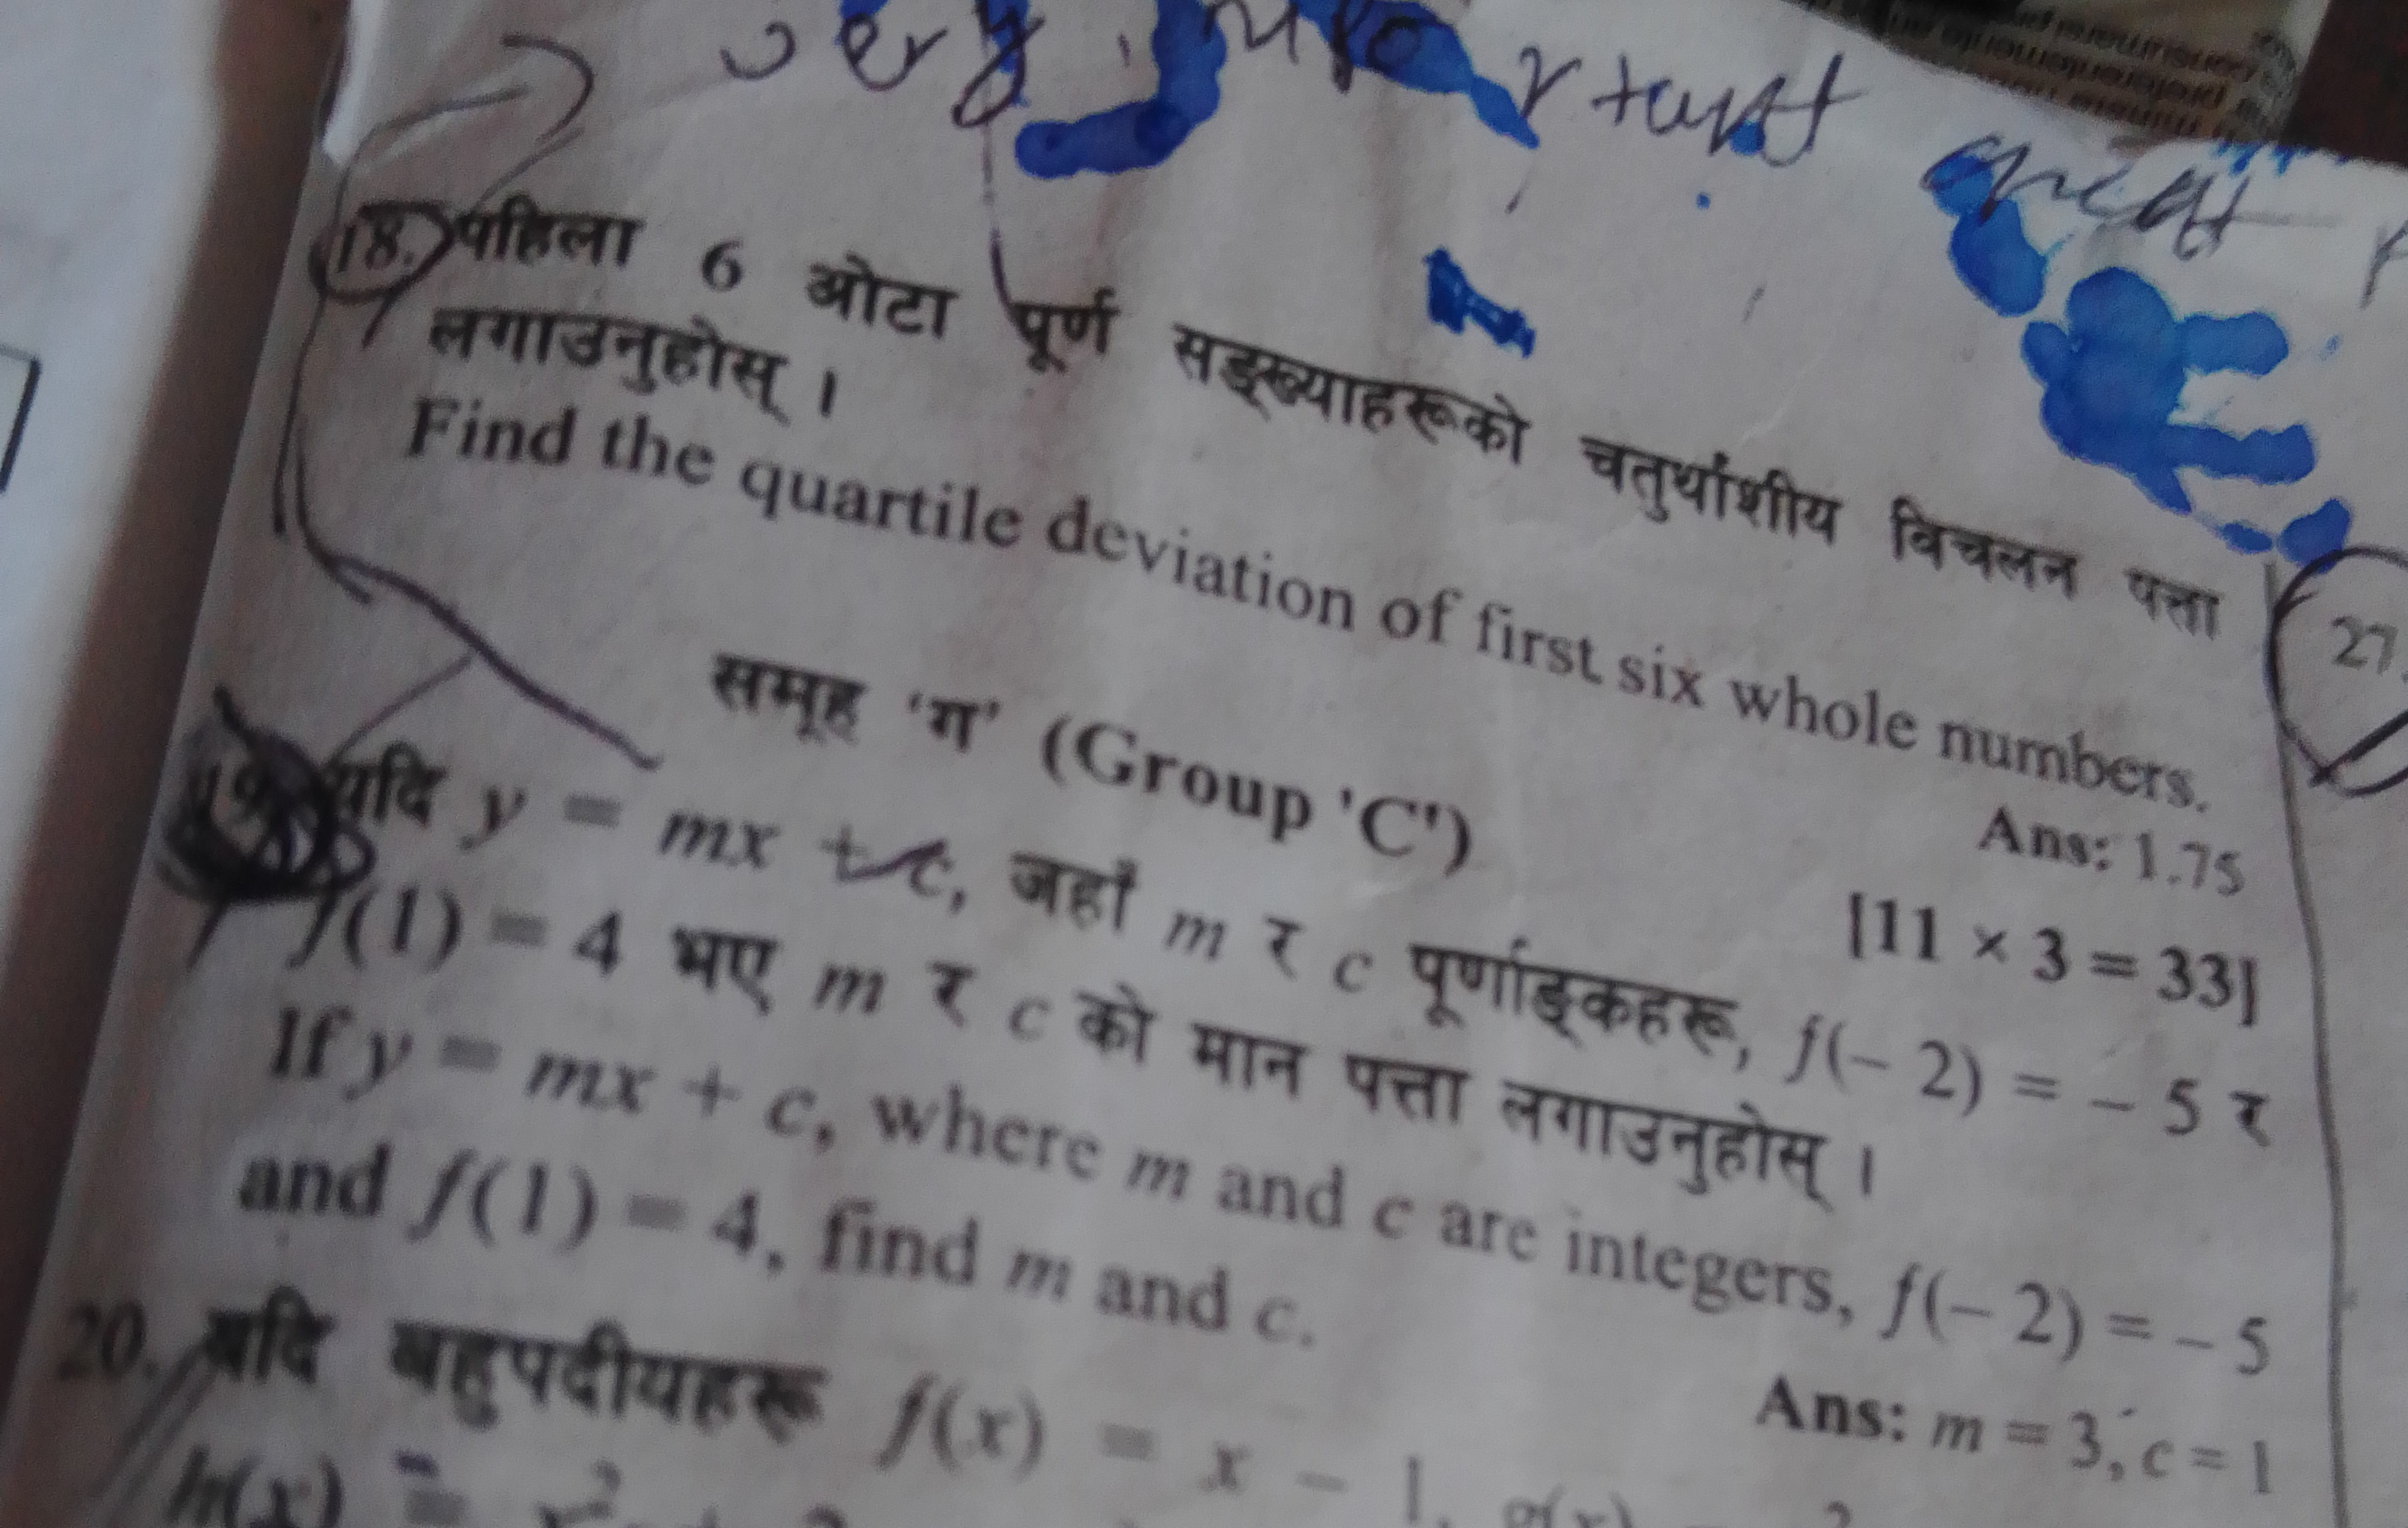 very important
18. पहिला 6 ओटा पूर्ण सङ्ख्याहरूको चतुर्थांशीय विचलन पत्ता
लगाउनुहोस् ।
Find the quartile deviation of first six whole numbers.
Ans: 1.75
समूह ‘ग’ (Group 'C')
[11 × 3 = 33]
19. यदि y = mx + c, जहाँ m र c पूर्णाङ्कहरू, f(– 2) = – 5 र
f(1) = 4 भए m र c को मान पत्ता लगाउनुहोस् ।
If y = mx + c, where m and c are integers, f(– 2) = – 5
and f(1) = 4, find m and c.
Ans: m = 3, c = 1
20. यदि बहुपदीयहरू f(x) = x – 1,
h(x) =
27.